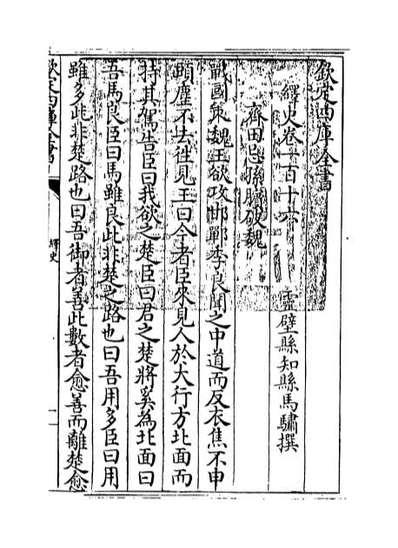 欽定四庫全書
繹史卷一百十六
靈壁縣知縣馬驌撰
齊田忌孫臏破魏
戰國策魏王欲攻邯鄲季良聞之中道而反衣焦不申
頭塵不去往見王曰今者臣來見人於大行方北面而
持其駕告臣曰我欲之楚臣曰君之楚將奚為北面曰
吾馬良臣曰馬雖良此非楚之路也曰吾用多臣曰用
雖多此非楚路也曰吾御者善此數者愈善而離楚愈
欽定四庫全書
繹史
一